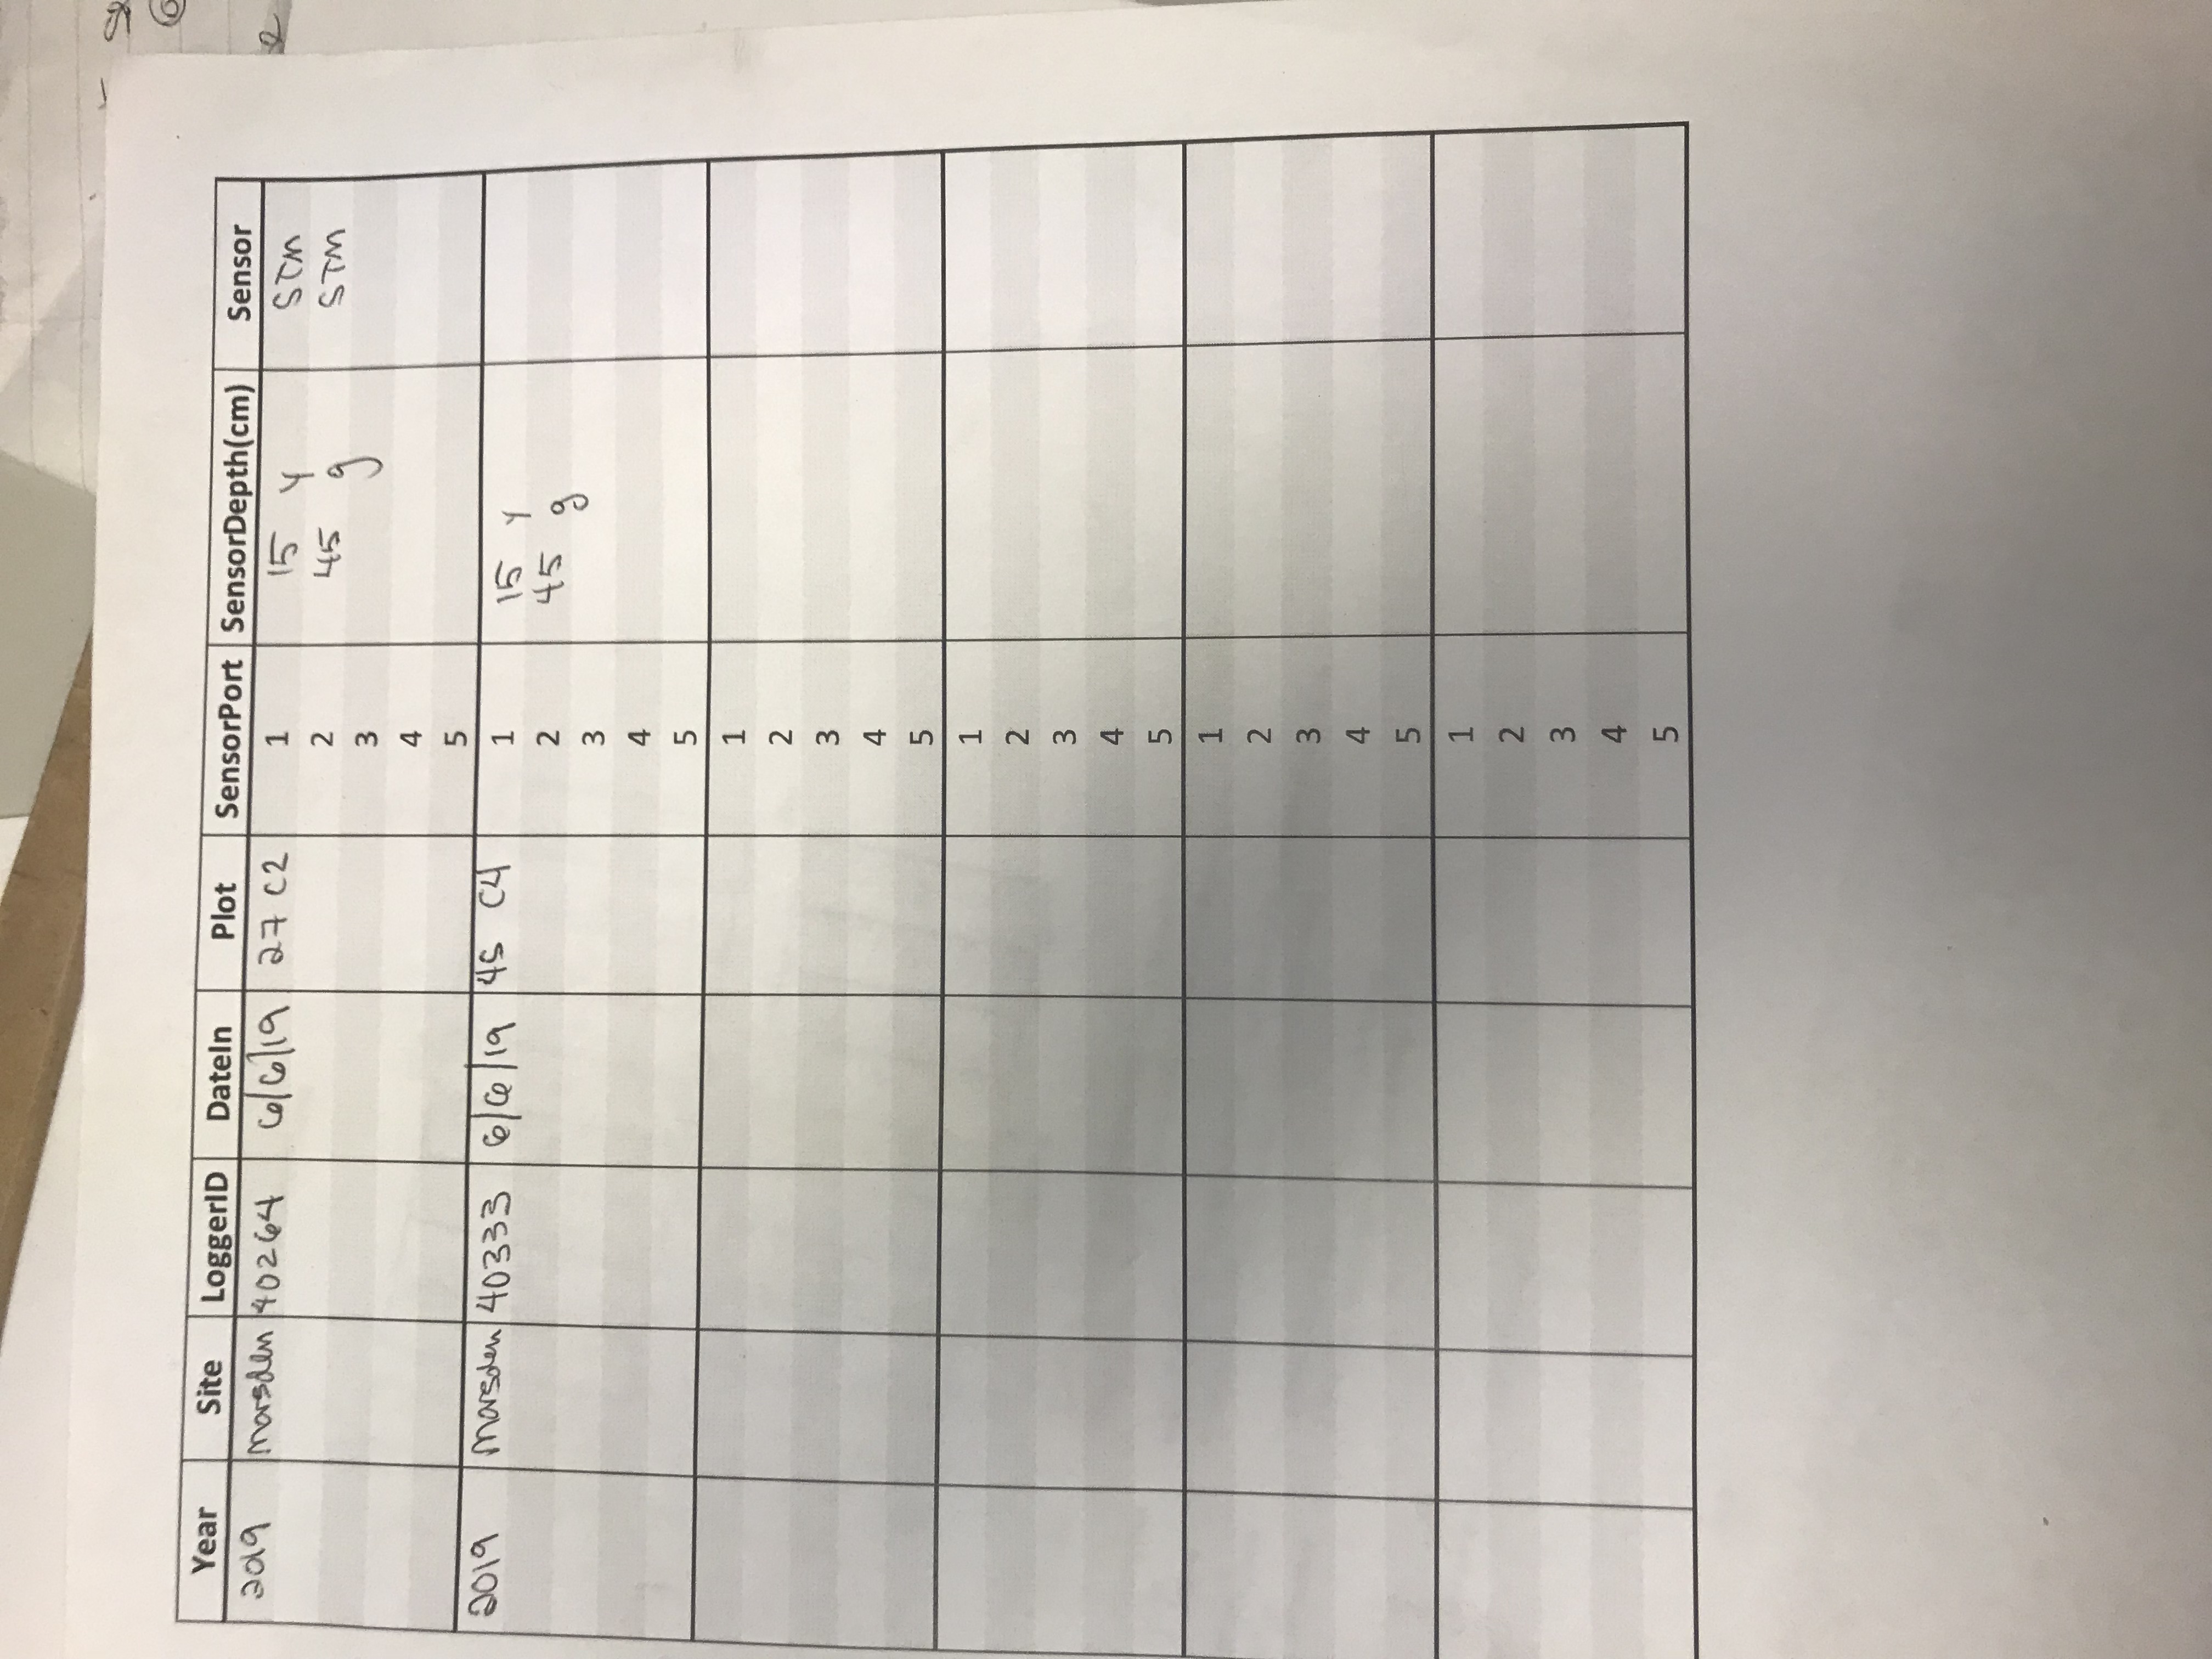 Year Site LoggerID DateIn Plot SensorPort SensorDepth(cm) Sensor
2019 Marsden 40264 6/6/19 27 C2 1 15 y STM
2 45 g STM
3
4
5
2019 Marsden 40333 6/6/19 45 C4 1 15 y
2 45 g
3
4
5
1
2
3
4
5
1
2
3
4
5
1
2
3
4
5
1
2
3
4
5